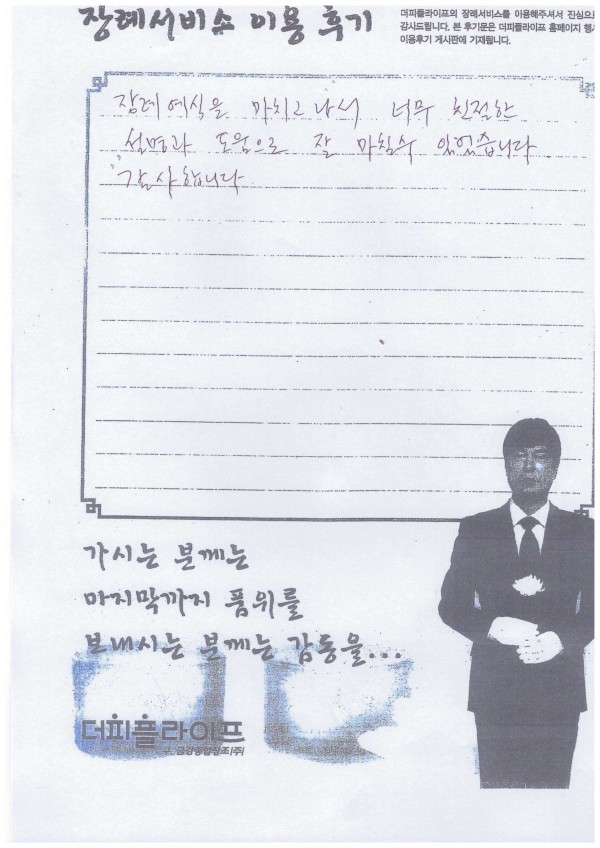 장례서비스 이용 후기
더피플라이프의 장례서비스를 이용해주셔서 진심으로
감사드립니다. 본 후기문은 더피플라이프 홈페이지 행사
이용후기 게시판에 기재됩니다.
장례예식을 마치고 나서 너무 친절한
설명과 도움으로 잘 마칠수 있었습니다
감사합니다
가시는 분께는
마지막까지 품위를
보내시는 분께는 감동을...
더피플라이프
구. 금강종합상조(주)